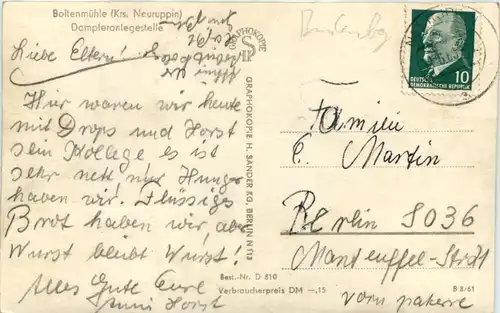 Boltenmühle (Krs. Neuruppin)
Dampferanlegestelle
Liebe Eltern!
Hier waren wir heute
mit Drops und Horst
sein Kollege es ist
sehr nett nur Hunger
haben wir. Flüssiges
Brot haben wir, aber
Wurst bleibt Wurst!
Alles Gute Eure
Horst
GRAPHOKOPIE
GRAPHOKOPIE H. SANDER KG, BERLIN N 113
Best.-Nr. D 810
Verbraucherpreis DM –,15
DEUTSCHE
DEMOKRATISCHE REPUBLIK
10
Familie
E. Martin
Berlin 8036
Manteuffel-Straße
vorn paterre
B 8/61